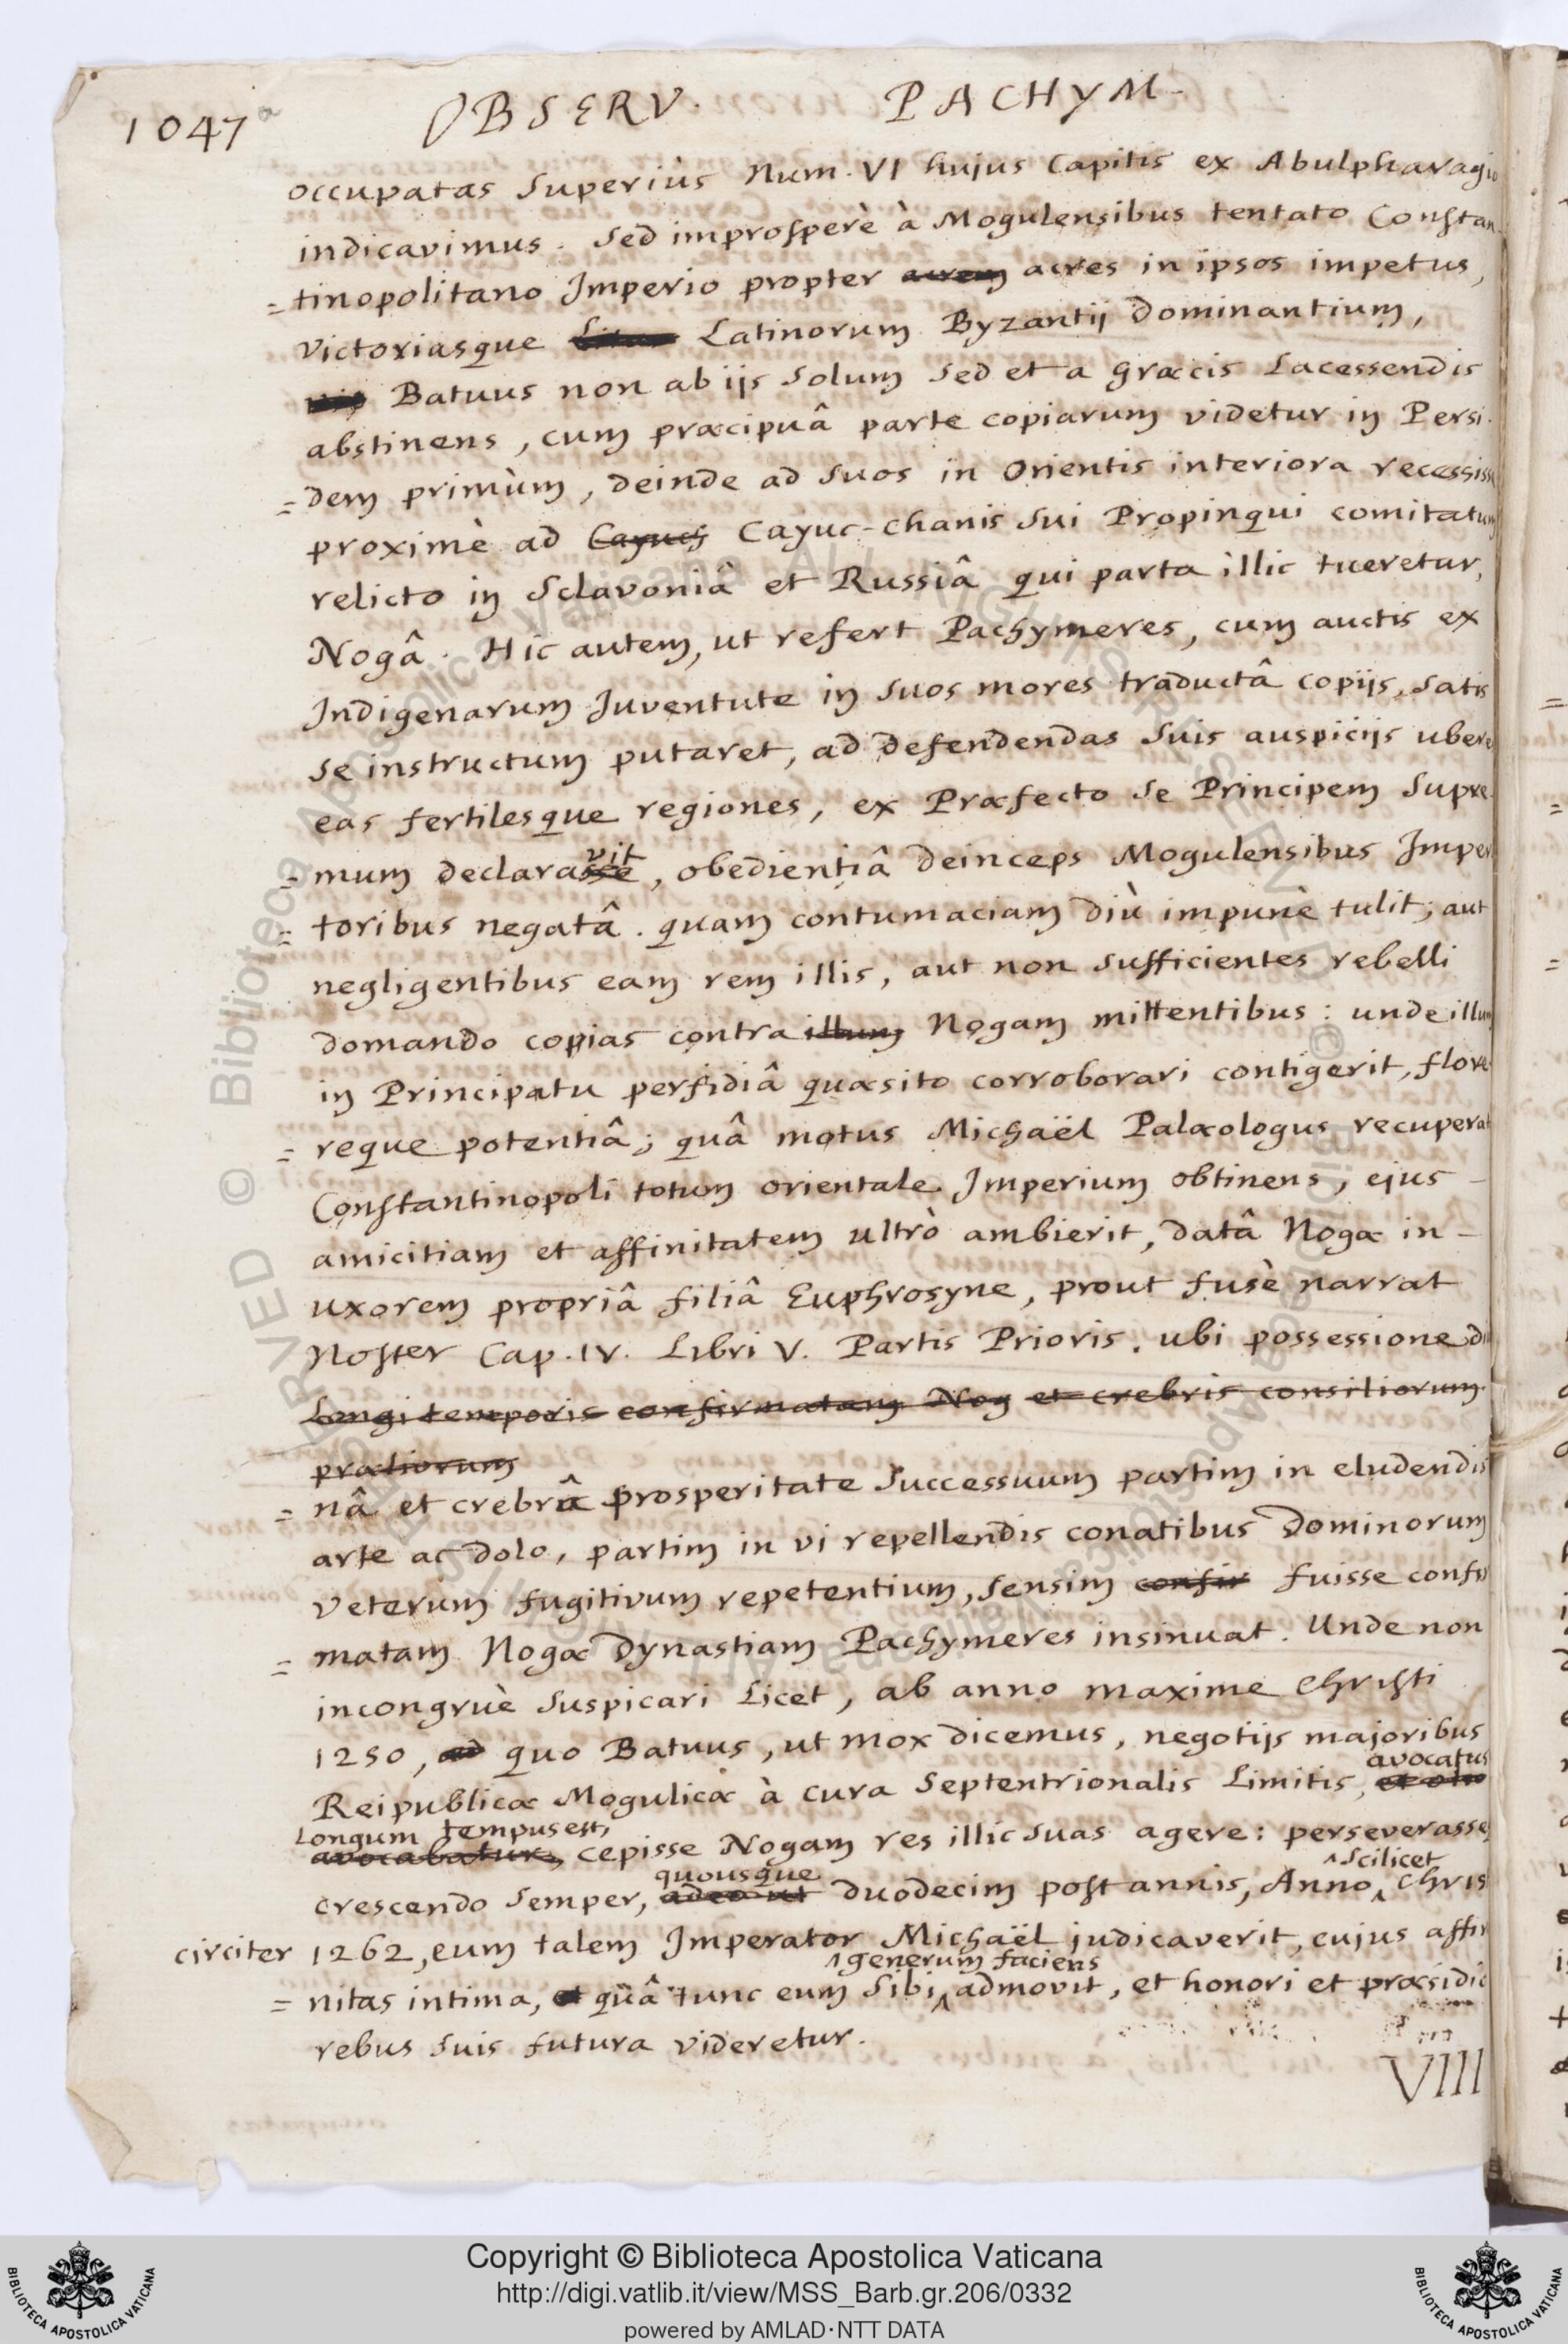 1047 a
OBSERV. PACHYM.
occupatas superiùs Num. VI hujus Capitis ex Abulpharagio
indicavimus. Sed improsperè à Mogulensibus tentato Constan
=tinopolitano Imperio propter acrem acres in ipsos impetus,
victoriasque Latinorum Byzantij dominantium,
Batuus non ab ijs solum sed et a græcis lacessendis
abstinens, cum præcipuâ parte copiarum videtur in Persi-
=dem primùm, deinde ad suos in Orientis interiora recessiss
proximè ad Cayuch Cayuc-chanis sui Propinqui comitatum
relicto in Sclavoniâ et Russiâ qui parta illic tueretur,
Nogâ. Hic autem, ut refert Pachymeres, cum auctis ex
Indigenarum Juventute in suos mores traductâ copijs, satis
se instructum putaret, ad defendendas suis auspicijs ubere
eas fertilesque regiones, ex Præfecto se Principem Supre-
vit
=mum declarasse, obedientiâ deinceps Mogulensibus Imper
=toribus negatâ. quam contumaciam diù impunè tulit; aut
negligentibus eam rem illis, aut non sufficientes rebelli
domando copias contra illum Nogam mittentibus: unde illum
in Principatu perfidiâ quæsito corroborari contigerit, flore-
=reque potentiâ; quâ motus Michaël Palæologus recuperat
Constantinopoli totum orientale Imperium obtinens, ejus
amicitiam et affinitatem ultrò ambierit, datâ Nogæ in-
uxorem propriâ filiâ Euphrosyne, prout fusè narrat
Noster Cap. IV. Libri V. Partis Prioris. ubi possessione di
Longi temporis confirmatam Nog et crebris consiliorum
præliorum
=nâ et crebrâ prosperitate successuum partim in eludendis
arte ac dolo, partim in vi repellendis conatibus Dominorum
veterum fugitivum repetentium, sensim confir fuisse confir
=matam Nogæ Dynastiam Pachymeres insinuat. Unde non
incongruè suspicari licet, ab anno maxime Christi
1250, ad quo Batuus, ut mox dicemus, negotijs majoribus
avocatus
Reipublicæ Mogulicæ à cura Septentrionalis Limitis, et otio
Longum tempus est,
avocabatur, cepisse Nogam res illic suas agere: perseverasse
quousque ^scilicet
crescendo semper, adeo ut duodecim post annis, Anno ^ Chris
circiter 1262, eum talem Imperator Michaël judicaverit, cujus affi
^generum faciens
=nitas intima, et quâ tunc eum sibi ^ admovit, et honori et præsidio
rebus suis futura videretur.
VIII
© Biblioteca Apostolica Vaticana ALL RIGHTS RESERVED
Copyright © Biblioteca Apostolica Vaticana
http://digi.vatlib.it/view/MSS_Barb.gr.206/0332
powered by AMLAD·NTT DATA
BIBLIOTECA APOSTOLICA VATICANA
BIBLIOTECA APOSTOLICA VATICANA